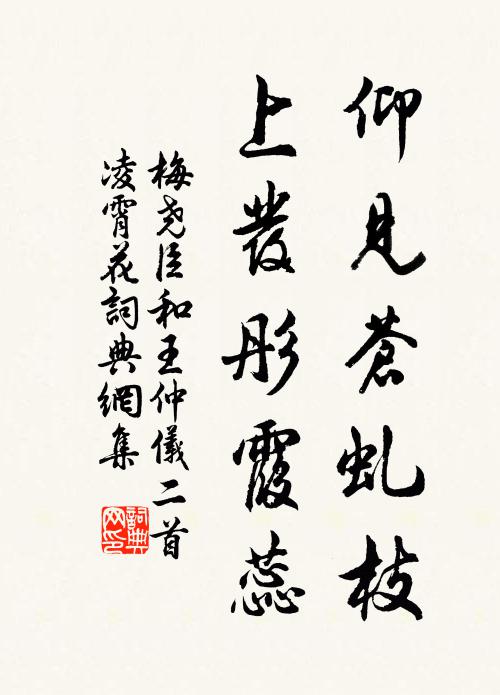 仰見蒼虬枝
上發彤霞蕊
梅堯臣和王仲儀二首
凌霄花詞典網集
詞典
网印